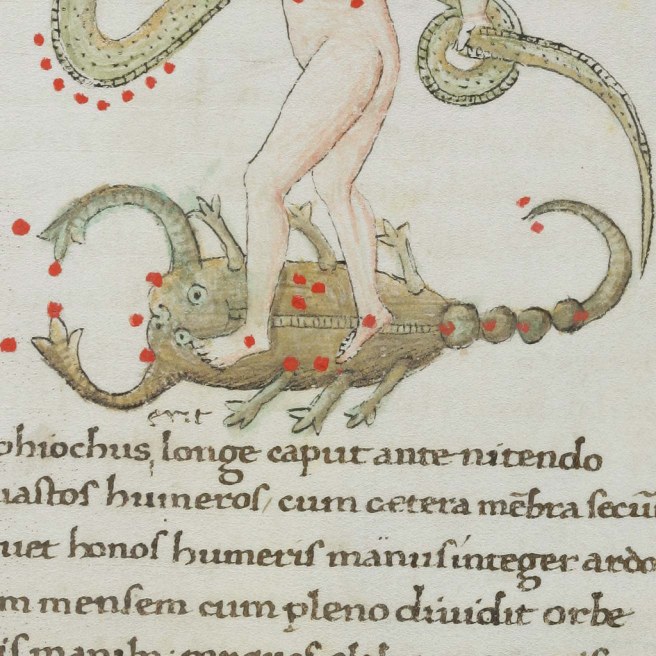 erit
ophiochus, longe caput ante nitendo
uastos humeros, cum cetera mēbra secū
uet honos humeris manus integer ardo
m mensem cum pleno diuidit orbe